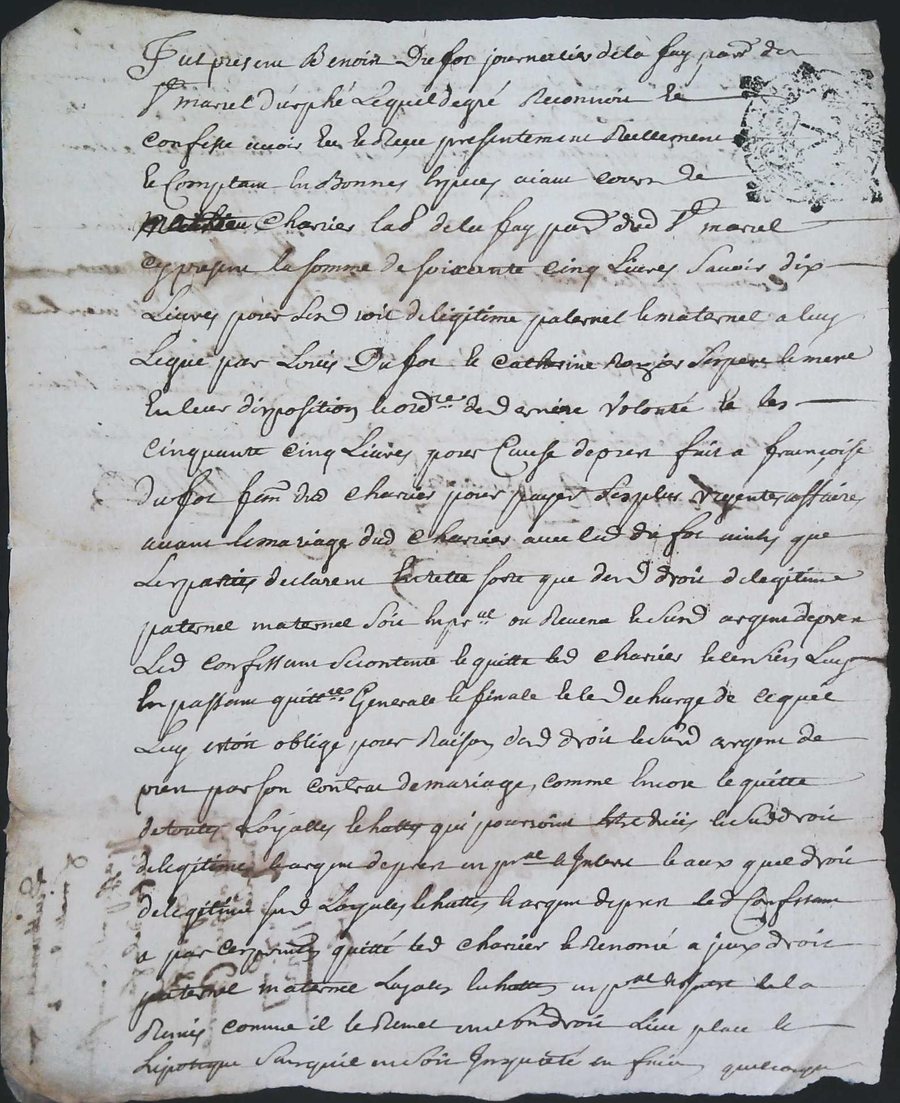 Fut present Benoit Dufot journalier de la fay parr de
St marcel durphé Lequel degré Reconnoit Et
confesse avoir Eu Et Reçu presentement Reellement
Et Comptant En Bonnes Especes aiant cours de
Charier lab de la fay parr dud St marcel
cy present la somme de soixante cinq Livres Savoir dix
Livres pour Sesd droit de legitime paternel Et maternel a luy
Legué par Louis Dufot Et Catherine Ses pere Et mere
En leur disposition Et de derniere Volonté Et les
cinquante cinq Livres pour Cause de prest fait a françoise
dufot dud Charier pour payer Ses plus Urgentes affaires
avant Le mariage dud Charier avec lad du fot ainsy que
Les parties declarent En cette sorte que desd droit de legitime
paternel maternel Soit En pral ou Revenu Et Susd argent de prest
Led confessant Se contente Et quitte led Charier Et les siens Luy
En passant quittce Generale Et finale Et le decharge de ce qu'il
Luy Estoit obligé pour Raison dud droit Et Susd argent de
prest par son contrat de mariage, comme Encore Le quitte
de toutes Loyalles qui pour soit Et Sud droit
de legitime Et argent de prest En pral Et Interest auxquel droit
de legitime Susd Loyales Et argent de prest Led Confessant
a par Ces presentes quitté led Charier Et Renoncé a
paternel maternel Loyales En pral Et la
Remis comme il le Remet En droit Lieu place Et
hipoteque Sans quil En Soit Inquieté En quelconque